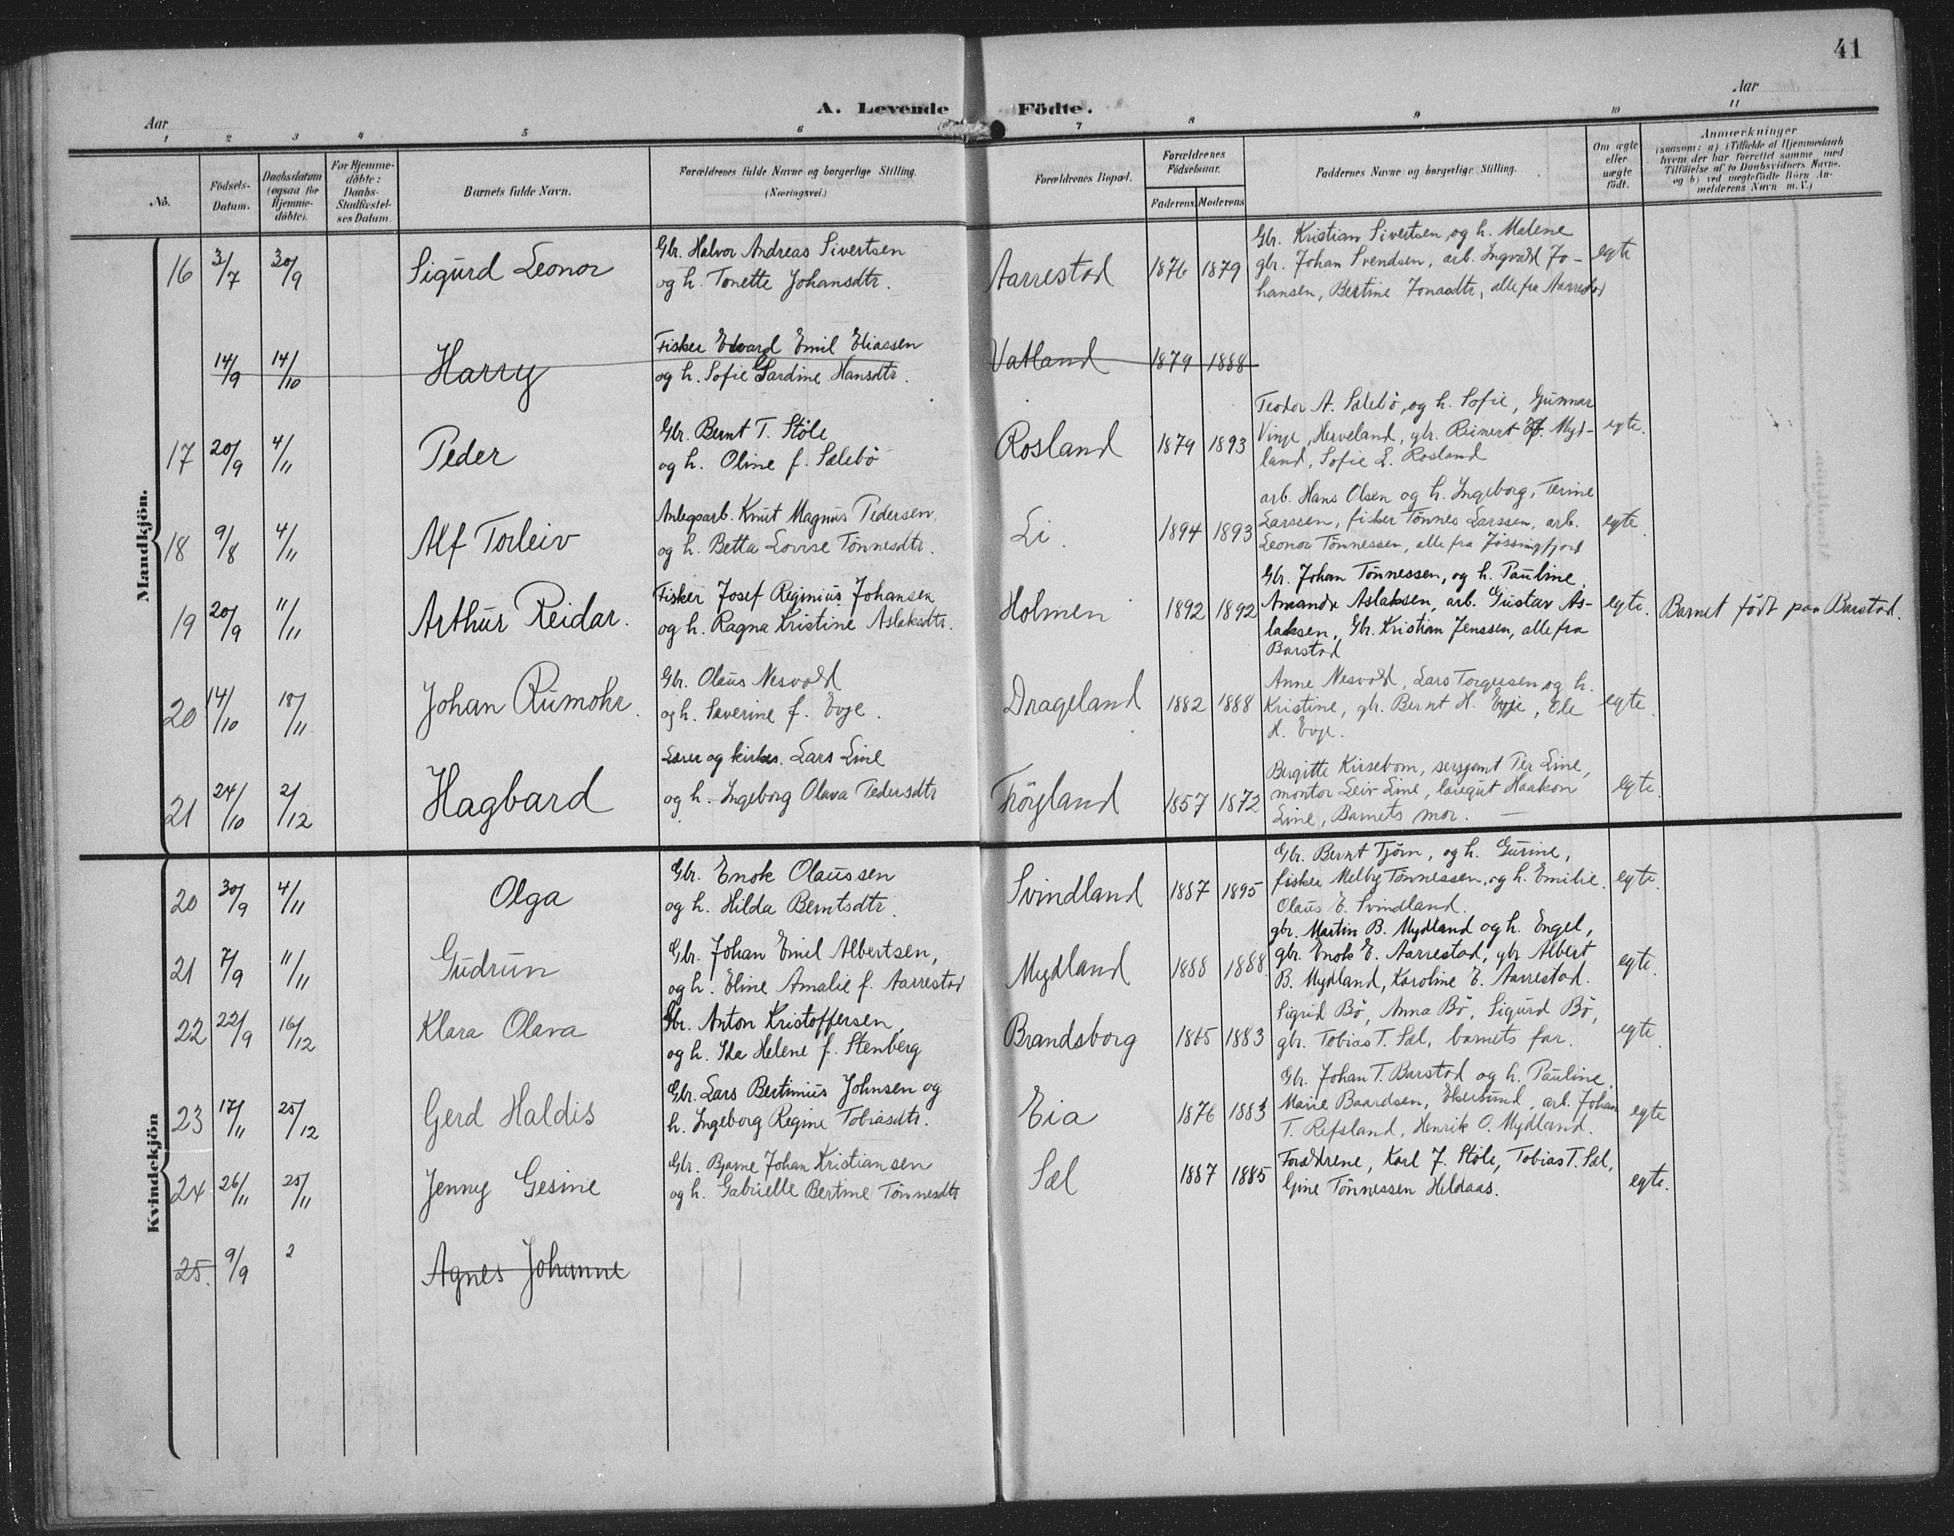 41
A. Levende Födte.
Aar
Aar
1 2 3 4 5 6 7 8 9 10 11
No.
Födsels-Datum.
Daabsdatum (ogsaa for Hjemme-döbte).
For Hjemme-döbte: Daabs-Stadfæstel-ses Datum.
Barnets fulde Navn.
Forældrenes fulde Navne og borgerlige Stilling. (Næringsvei.)
Forældrenes Bopæl.
Forældrenes Födselsaar.
Faderens. Moderens.
Faddernes Navne og borgerlige Stilling.
Om ægte eller uægte födt.
Anmærkninger
(saasom: a) i Tilfælde af Hjemmedaab
hvem der har forrettet samme med
Tilföielse af to Daabsvidners Navne,
og b) ved uægtefödte Börn An-
melderens Navn m. V.)
Mandkjön.
16 3/7 30/9 Sigurd Leonor
Gbr. Halvor Andreas Sivertsen
og h. Tonette Johansdtr.
Aarrestad 1876 1879
Gbr. Kristian Sivertsen og h. Malene
gbr. Johan Svendsen, arb. Ingvald Jo-
hansen, Bertine Jonasdtr, alle fra Aarrestad
egte
14/9 14/10 Harry
Fisker Edvard Emil Eliassen
og h. Sofie Gardine Hansdtr.
Vatland 1879 1888
17 20/9 4/11 Peder
Gbr. Bernt T. Støle
og h. Oline f. Salebø
Rosland 1879 1893
Teodor A. Salebø, og h. Sofie, Gunnar
Vinje, Herveland, gbr. Reinert Myd-
land, Sofie L. Rosland
egte.
18 9/8 4/11 Alf Torleiv
Anlegsarb. Knut Magnus Pedersen
og h. Betta Lovise Tønnesdtr.
Li. 1894 1893
arb. Hans Olsen og h. Ingeborg, Terine
Larssen, fisker Tønnes Larssen, arb.
Leonor Tønnessen, alle fra Jøssingfjord
egte.
19 20/9 11/11 Arthur Reidar.
Fisker Josef Reginius Johansen
og h. Ragna Kristine Aslaksdtr.
Holmen 1892 1892
Gbr. Johan Tønnessen, og h. Pauline,
Amanda Aslaksen, arb. Gustav As-
laksen, Gbr. Kristian Jenssen, alle fra
Barstad
egte. Barnet født paa Barstad.
20 14/10 18/11 Johan Rumohr.
Gbr. Olaus Nesvold
og h. Severine f. Evje.
Drageland 1882 1888
Anne Nesvold, Lars Torgersen og h.
Kristine, gbr. Bernt H. Evje, Ole
H. Evje.
egte.
21 24/10 2/12 Hagbard
Lærer og kirkes. Lars Line
og h. Ingeborg Olava Pedersdtr
Frøyland 1857 1872
Birgitte Kirsebom, sersjant Per Line,
montør Leiv Line, Haakon
Line, Barnets mor.
egte.
Kvindekjön
20 30/9 4/11 Olga
Gbr. Enok Olaussen
og h. Hilda Berntsdtr.
Svindland 1887 1895
Gbr. Bernt Tjørn, og h. Gurine,
fisker Melby Tønnessen, og h. Emilie.
Olaus E. Svindland.
egte.
21 7/9 11/11 Gudrun
Gbr. Johan Emil Albertsen,
og h. Eline Amalie f. Aarrestad
Mydland 1888 1888
gbr. Martin B. Mydland og h. Engel,
gbr. Enok E. Aarrestad, gbr Albert
B. Mydland, Karoline E. Aarrestad.
egte.
22 22/9 16/12 Klara Olava
Gbr. Anton Kristoffersen,
og h. Ida Helene f. Stenberg
Brandsborg 1865 1883
Sigrid Bø, Anna Bø, Sigurd Bø,
gbr. Tobias T. Sæl, barnets far.
egte.
23 17/11 25/12 Gerd Haldis
Gbr. Lars Bertinius Johnsen og
h. Ingeborg Regine Tobiasdtr.
Eia 1876 1883
Gbr. Johan T. Barstad og h. Pauline,
Marie Baardsen, Ekersund, arb. Johan
T. Refsland, Henrik O. Mydland.
egte
24 26/11 25/11 Jenny Gesine
Gbr. Bjarne Johan Kristiansen
og h. Gabrielle Bertine Tønnesdtr
Sæl 1887 1885
Forældrene, Karl J. Støle, Tobias T. Sæl,
Gine Tønnessen Heldaas.
egte.
25. 9/9 2 Agnes Johanne